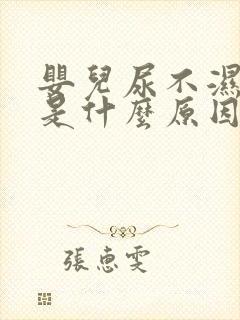 嬰兒尿不濕
是什麼原因
張惠雯